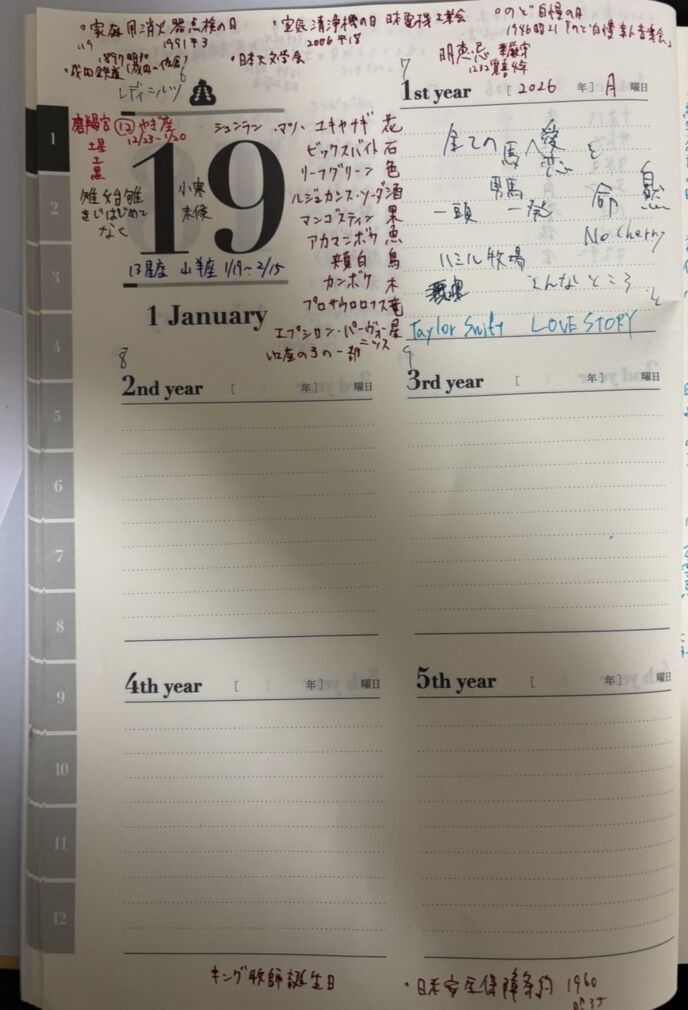 ・家庭用消火器点検の日
119 1991年3
・室内清浄機の日 日本電機工業会
2006年18
・のど自慢の日
1946 21年1「のど自慢素人音楽会」
1897 明30
・成田鉄道(成田―佐倉)
・日本天文学会
明恵忌
1232 寛喜4年
6
レディーシルツ
7
1st year [ 2026 年] 月 曜日
磨羯宮 ⑫ やぎ座
12/23〜1/20
土星
土
黒
19
小寒
末候
雉始雊
きじはじめて
なく
13星座 山羊座 1/19〜2/15
1 January
シュンラン・マツ・ユキヤナギ 花
ビックスバイト 石
リーフグリーン 色
ルジェカシス・ソーダ 酒
マンゴスティン 果
アカマンボウ 魚
頬白 鳥
カンボク 木
プロサウロロフス 竜
エプシロン・パーヴォニス 星
全ての馬へ愛を
恋
男馬 命 自然
一頭 一発
No Cherry
ハミル牧場
どんなところ
Taylor Swift LOVE STORY
8
2nd year [ 年] 曜日
9
3rd year [ 年] 曜日
4th year [ 年] 曜日
5th year [ 年] 曜日
1
2
3
4
5
6
7
8
9
10
11
12
キング牧師誕生日
・日米安全保障条約 1960
昭35